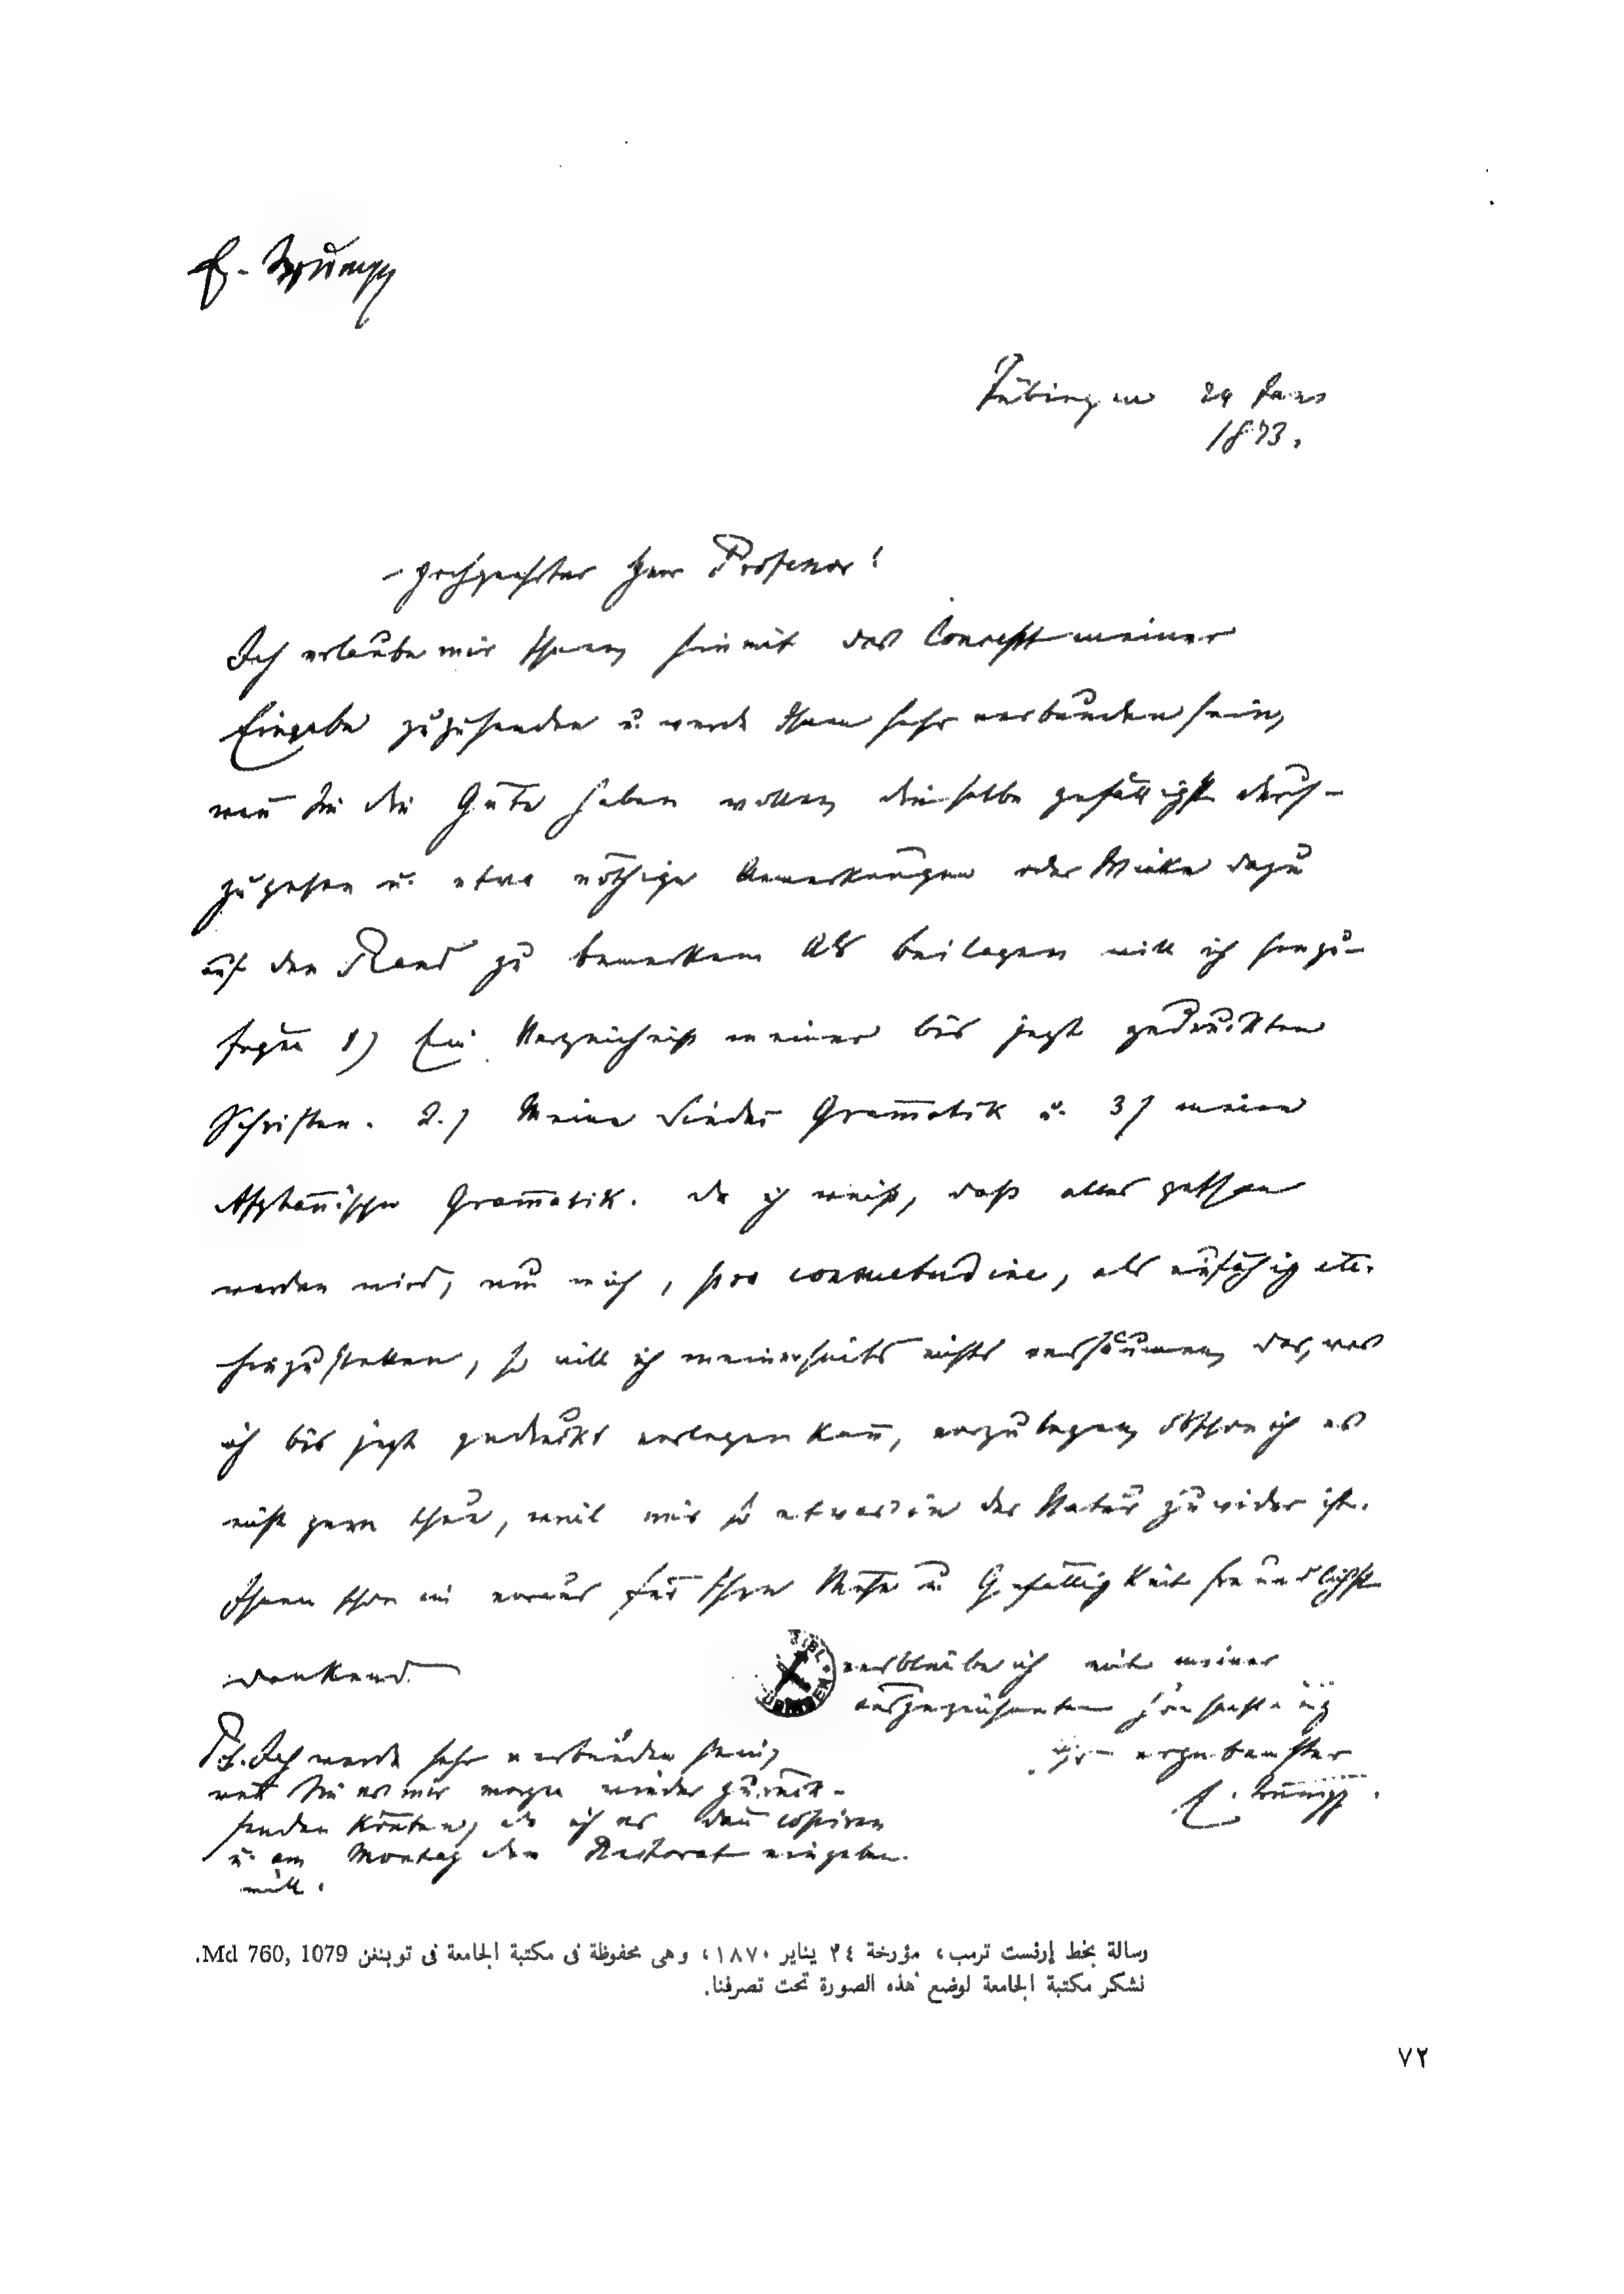 E. Trumpp
Tübingen 24 Jan
1873.
Hochgeehrter Herr Professor!
Ich erlaube mir Ihnen hiemit das Concept meiner
Eingabe zuzusenden u. werde Ihnen sehr verbunden sein,
wen̄ Sie die Güte haben wollen dieselbe gefälligst durch-
zugehen u. etwa nöthige Anmerkungen oder Winke dazu
auf den Rand zu bemerken Als Beilagen will ich hinzu-
fügen 1) Ein Verzeichniß meiner bis jezt gedruckten
Schriften. 2.) Meine Sindhi Gram̄atik u. 3) meine
Afghanische Gram̄atik. Da ich weiß, daß alles gethan
werden wird, um mich, pro consuetudine, als unfähig etc.
hinzustellen, so will ich meinerseits nichts versäumen, das, was
ich bis jezt gedruckt vorlegen kan̄, vorzulegen, obschon ich es
nicht gern thue, weil mir so etwas in der Natur zuwider ist.
Ihnen schon im voraus für Ihre Mühe u. Gefälligkeit freundlichst
dankend
verbleibe ich mit meiner
ausgezeichneten Hochachtung
Ihr ergebenster
E. Trumpp.
PS. Ich werde sehr verbunden sein,
wen̄ Sie es mir morgen wieder zurück-
senden kön̄ten, da ich es dan̄ copiren
u. am Montag dem Rectorat eingeben
will.
رسالة بخط إرنست ترمب، مؤرخة ٢٤ يناير ١٨٧٠، وهى محفوظة فى مكتبة الجامعة فى توبنغن Md 760, 1079.
نشكر مكتبة الجامعة لوضع هذه الصورة تحت تصرفنا.
٧٢